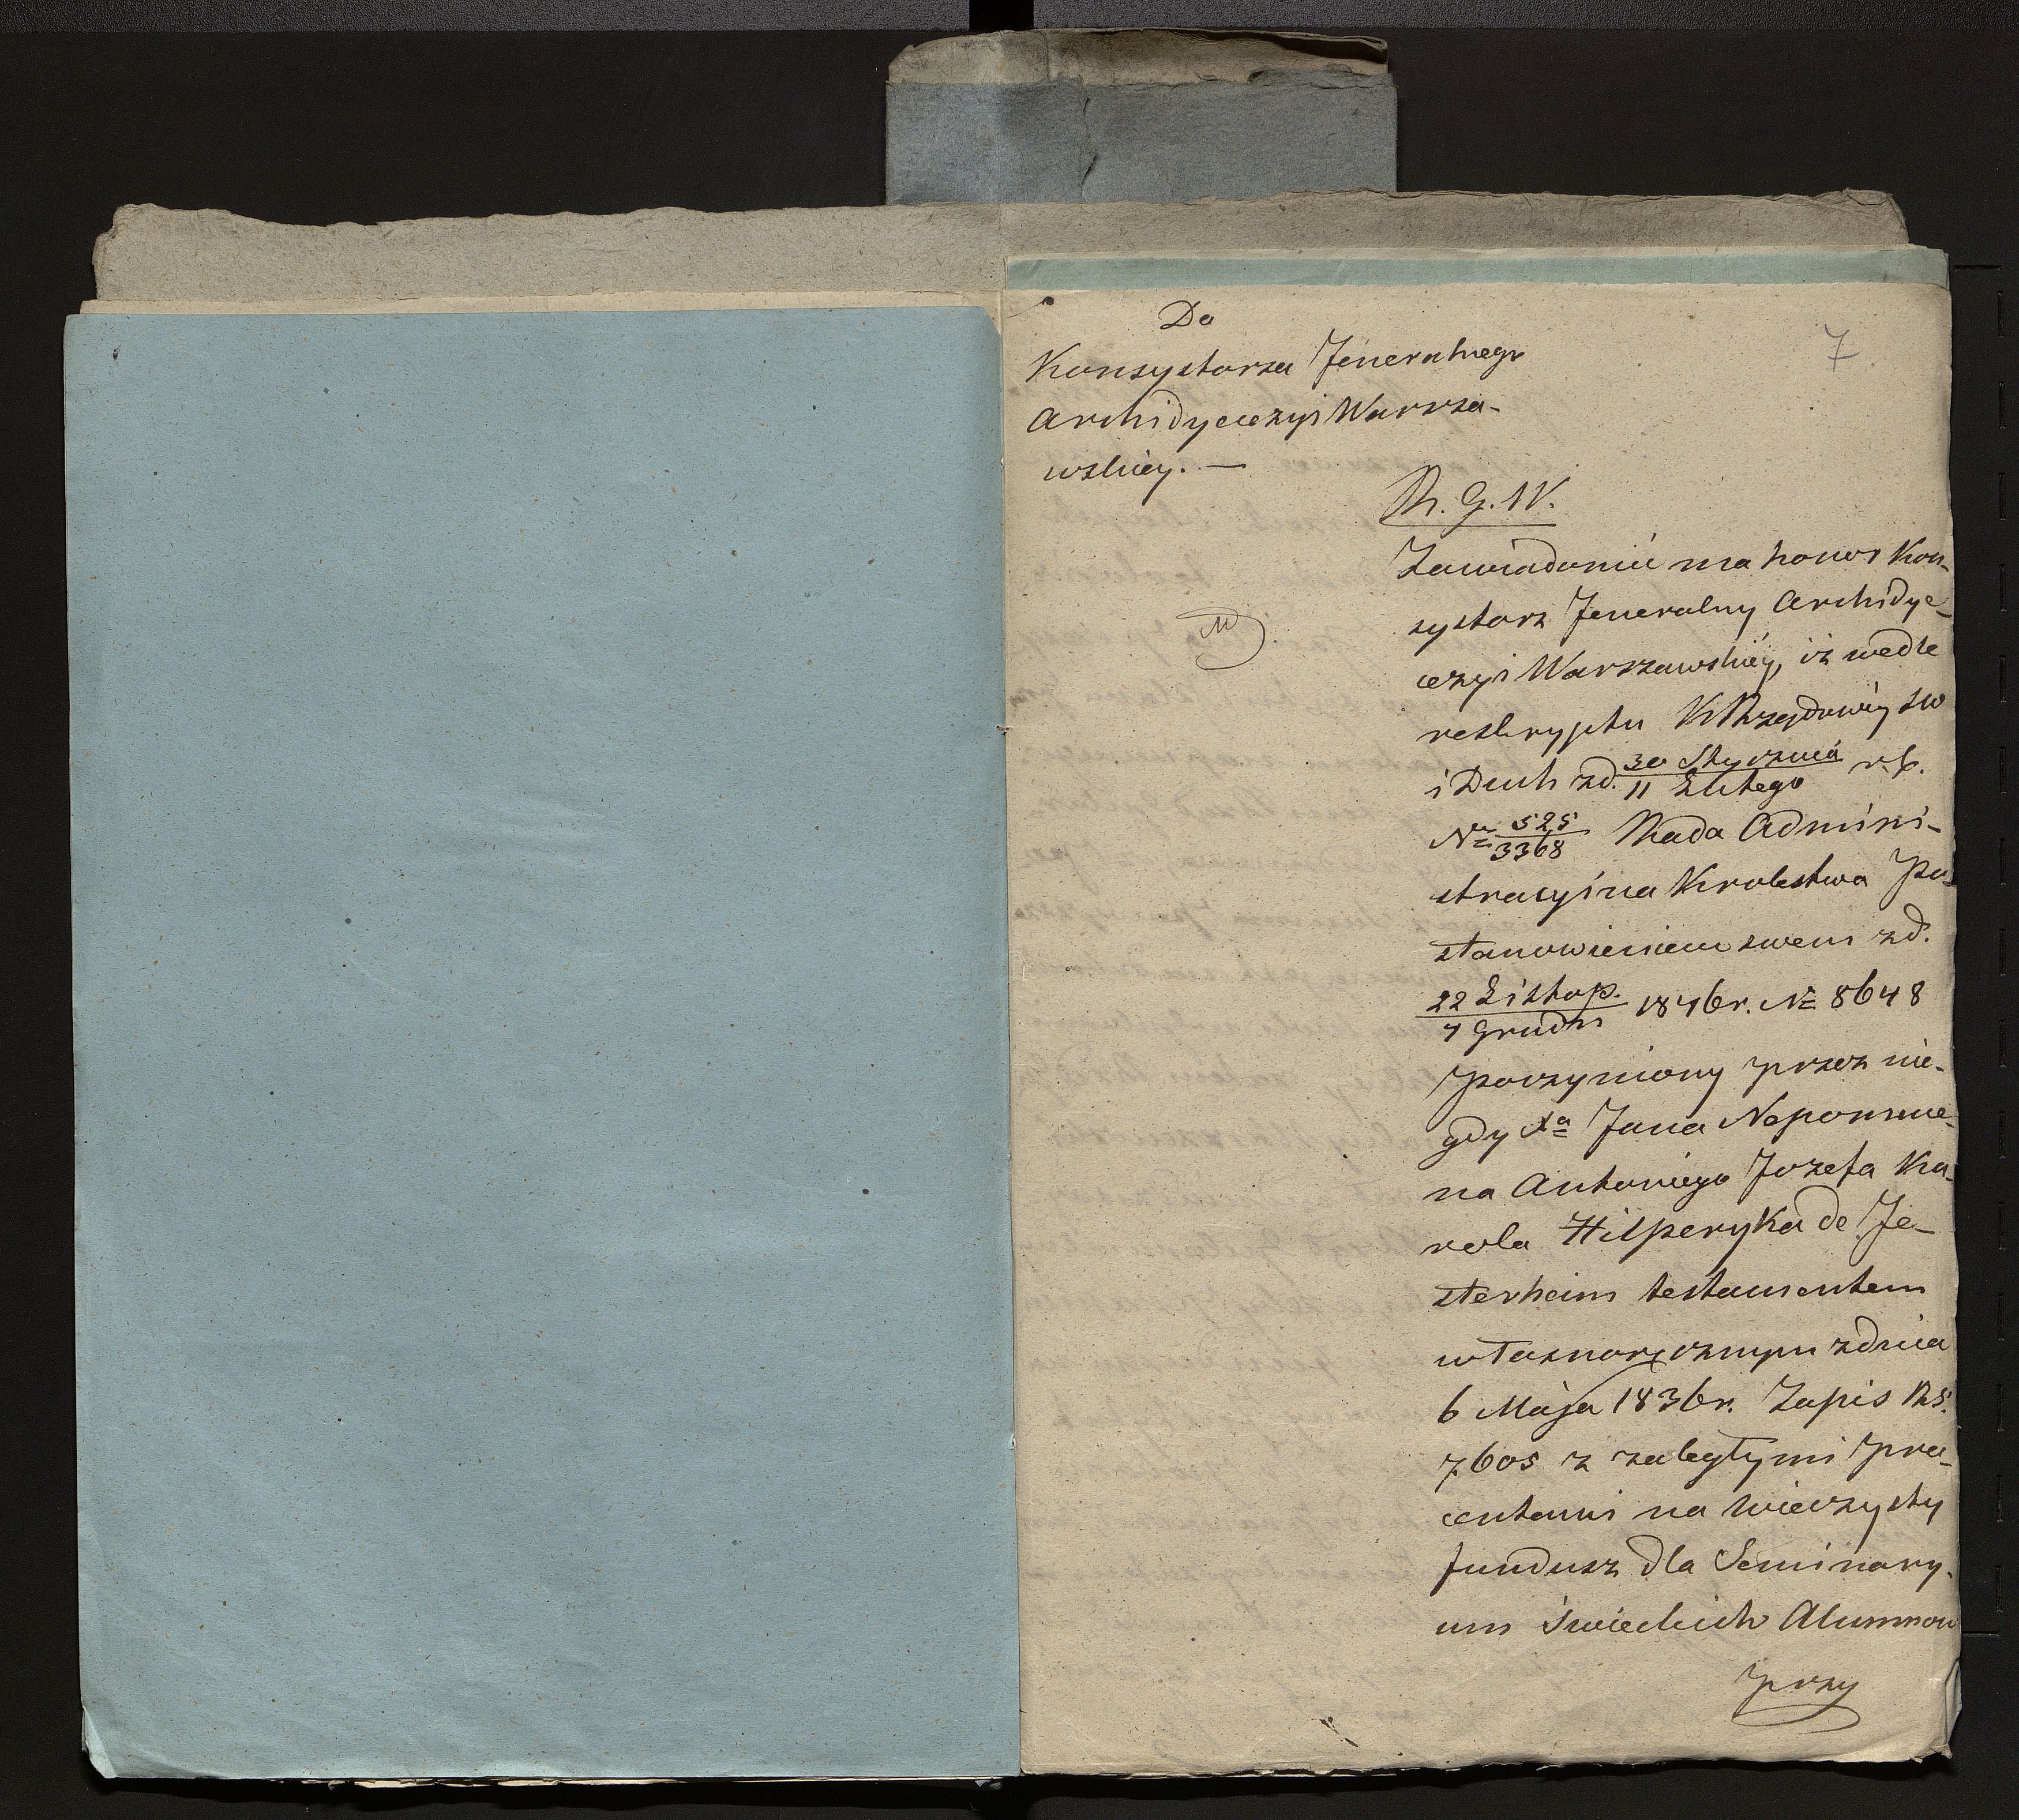 7
Do
Konsystorza Jeneralnego
Archidyecezyi Warsza-
wskiey. —
R. G. W.
Zawiadomić ma honor Kon-
systorz Jeneralny Archidye-
cezyi Warszawskiéy, iż wedle
reskryptu K Rządowéy SW
i Duch zd. 30 Stycznia / 11 Lutego r. b.
No 525/3368 Rada Admini-
stracyina Krolestwa Po-
stanowieniem swem zd.
22 Listop. / 4 Grudn 1846 r. No 8648
poczyniony przez nie-
gdy Xa Jana Nepomuce-
na Antoniego Jozefa Ka-
rola Hilperyka de Je-
sterheim testamentem
własnoręcznym zdnia
6 Maja 1836 r. Zapis RS.
7605 z zaległymi pro-
centami na wieczysty
fundusz dla Seminary-
um Swieckich Alumnow
przy